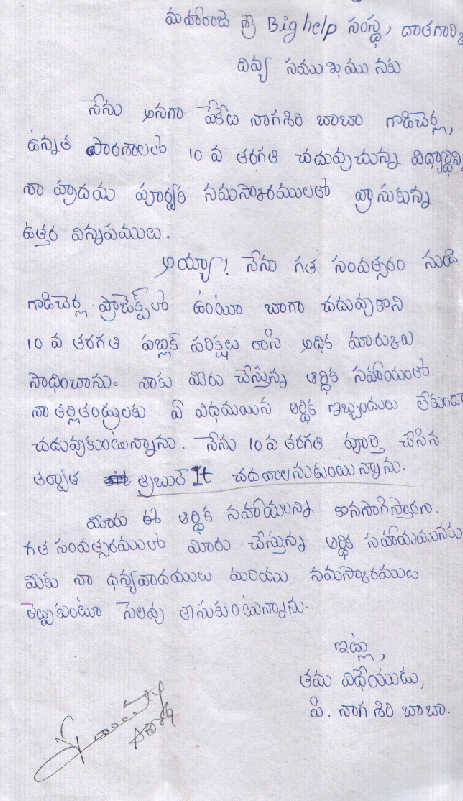 మహారాజ శ్రీ Big help సంస్థ, దాతగారి
దివ్య సముఖమునకు
నేను అనగా పేకేటి నాగశిరి బాబా గాడిచెర్ల,
ఉన్నత పాఠశాలలో 10 వ తరగతి చదువుచున్న విద్యార్థిని
నా హృదయ పూర్వక నమస్కారములతో వ్రాసుకున్న
ఉత్తర విన్నపములు.
అయ్యా! నేను గత సంవత్సరం నుండి
గాడిచెర్ల ప్రాజెక్ట్‌లో ఉంటూ బాగా చదువుకొని
10 వ తరగతి పబ్లిక్ పరీక్షలు రాసి అధిక మార్కులు
సాధించాను. నాకు మీరు చేస్తున్న ఆర్థిక సహాయంతో
నా తల్లితండ్రులకు ఏ విధమయిన ఆర్థిక ఇబ్బందులు లేకుండా
చదువుకుంటున్నాను. నేను 10వ తరగతి పూర్తి చేసిన
తర్వాత త్రిబుల్ It చదవాలనుకుంటున్నాను.
మీరు ఈ ఆర్థిక సహాయాన్ని కొనసాగిస్తారని.
గత సంవత్సరములో మీరు చేస్తున్న ఆర్థిక సహాయమునకు
మీకు నా ధన్యవాదములు మరియు నమస్కారములు
తెల్పుకుంటూ సెలవు తీసుకుంటున్నాను.
ఇట్లు,
తమ విధేయుడు,
పి. నాగ శిరి బాబా.